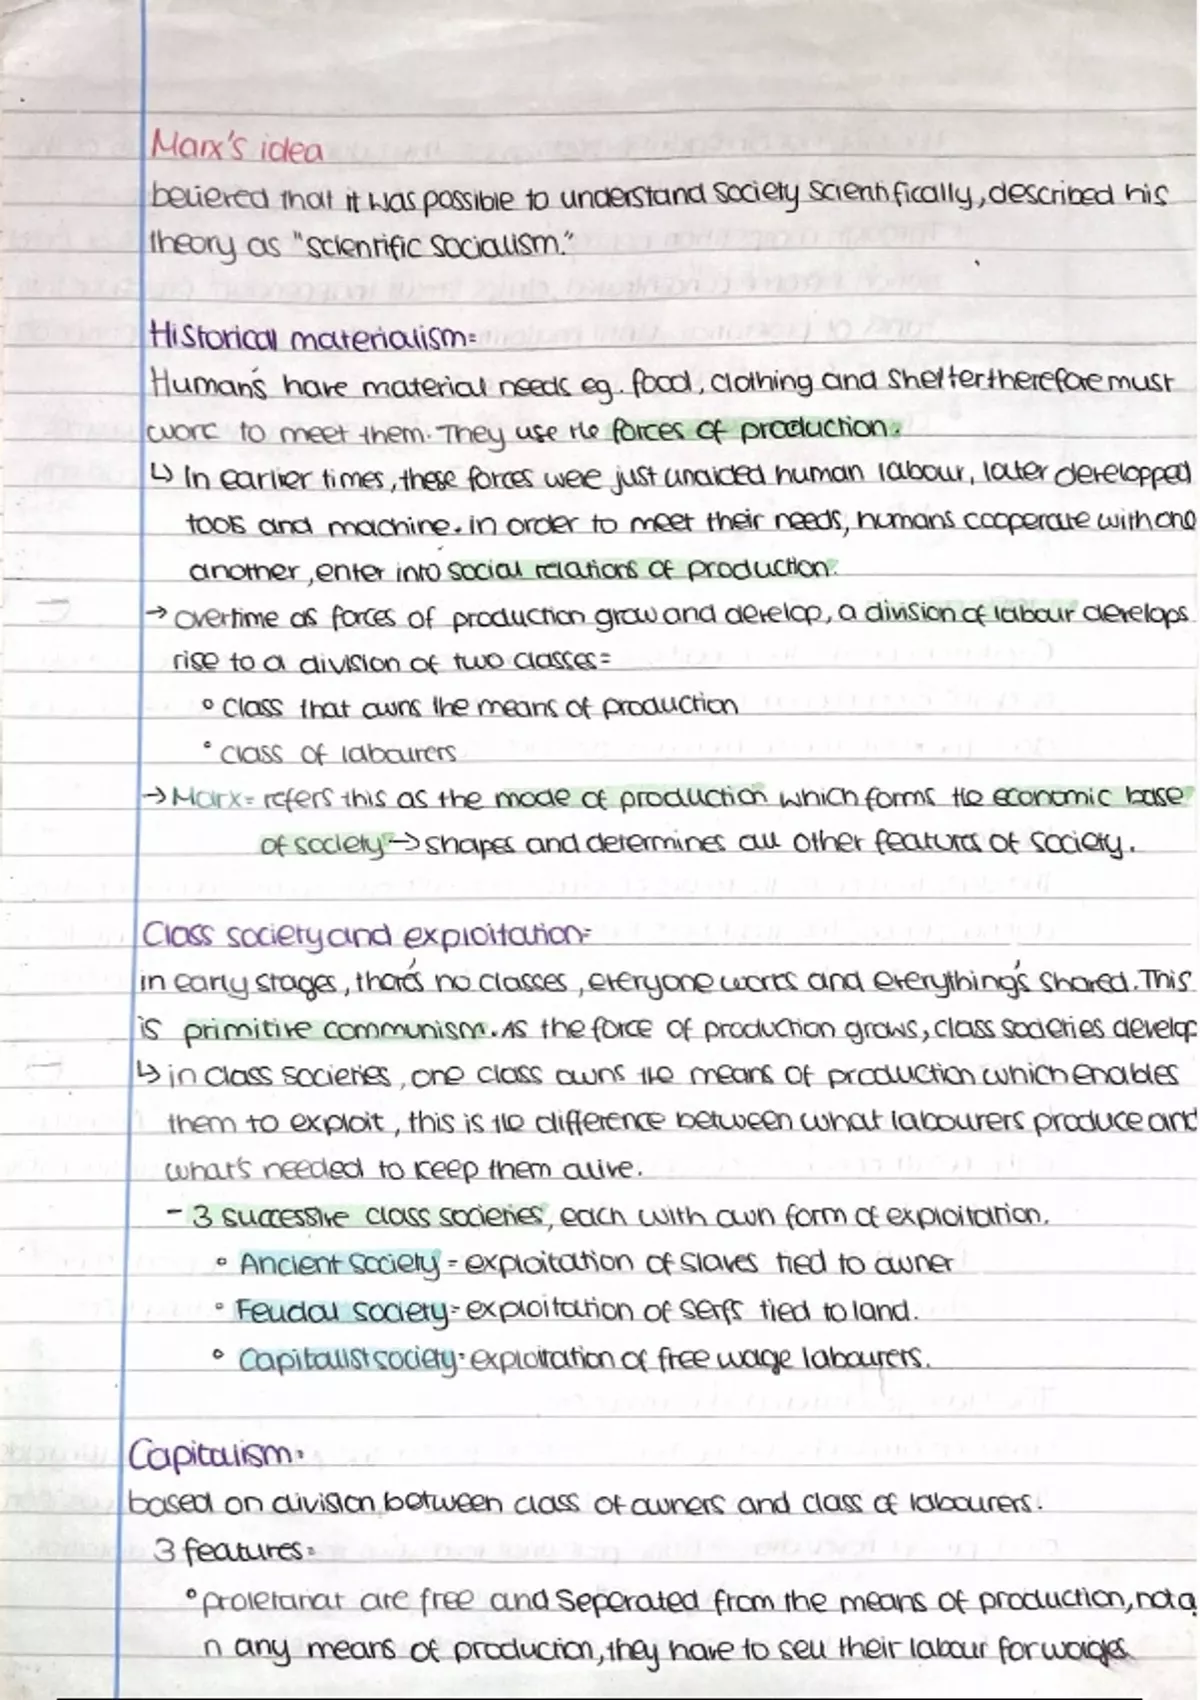 Marx's idea
believed that it was possible to understand society scientifically, described his
theory as "scientific socialism."
Historical materialism=
Human's have material needs eg. food, clothing and shelter therefore must
work to meet them. They use the forces of production.
↳ In earlier times, these forces were just unaided human labour, later developped
tools and machine. in order to meet their needs, humans cooperate with one
another, enter into social relations of production.
→ overtime as forces of production grow and develop, a division of labour develops
rise to a division of two classes=
° class that owns the means of production
° class of labourers
→ Marx= refers this as the mode of production which forms the economic base
of society → shapes and determines all other features of society.
Class society and exploitation=
in early stages, thar's no classes, everyone works and everything's shared. This
is primitive communism. As the force of production grows, class societies develop
↳ in class societies, one class owns the means of production which enables
them to exploit, this is the difference between what labourers produce and
what's needed to keep them alive.
- 3 successive class societies, each with own form of exploitation.
° Ancient society = exploitation of slaves tied to owner
° Feudal society= exploitation of serfs tied to land.
° Capitalist society= exploitation of free wage labourers.
Capitalism=
based on division between class of owners and class of labourers.
3 features=
° proletariat are free and seperated from the means of production, not a
n any means of production, they have to sell their labour for waiges